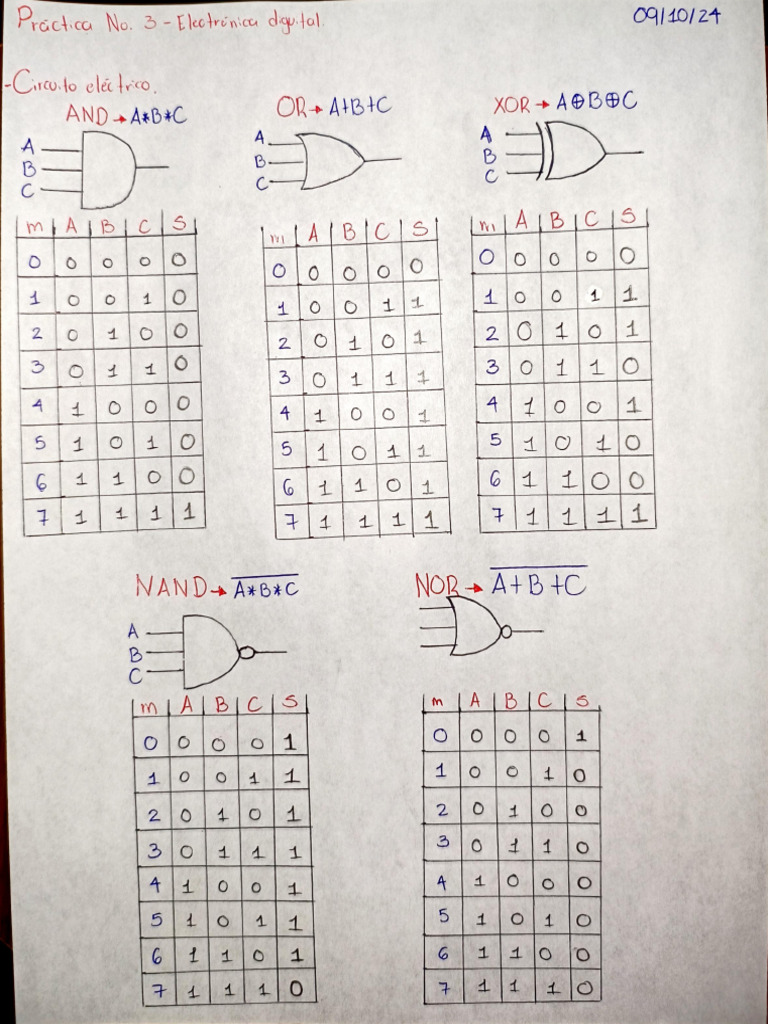 Práctica No. 3 - Electrónica digital.
09/10/24
-Circuito eléctrico.
AND → A*B*C
A
B
C
m A B C S
0 0 0 0 0
1 0 0 1 0
2 0 1 0 0
3 0 1 1 0
4 1 0 0 0
5 1 0 1 0
6 1 1 0 0
7 1 1 1 1
OR → A+B+C
A
B
C
m A B C S
0 0 0 0 0
1 0 0 1 1
2 0 1 0 1
3 0 1 1 1
4 1 0 0 1
5 1 0 1 1
6 1 1 0 1
7 1 1 1 1
XOR → A⊕B⊕C
A
B
C
m A B C S
0 0 0 0 0
1 0 0 1 1
2 0 1 0 1
3 0 1 1 0
4 1 0 0 1
5 1 0 1 0
6 1 1 0 0
7 1 1 1 1
NAND → A̅*̅B̅*̅C̅
A
B
C
m A B C S
0 0 0 0 1
1 0 0 1 1
2 0 1 0 1
3 0 1 1 1
4 1 0 0 1
5 1 0 1 1
6 1 1 0 1
7 1 1 1 0
NOR → A̅+̅B̅+̅C̅
m A B C S
0 0 0 0 1
1 0 0 1 0
2 0 1 0 0
3 0 1 1 0
4 1 0 0 0
5 1 0 1 0
6 1 1 0 0
7 1 1 1 0